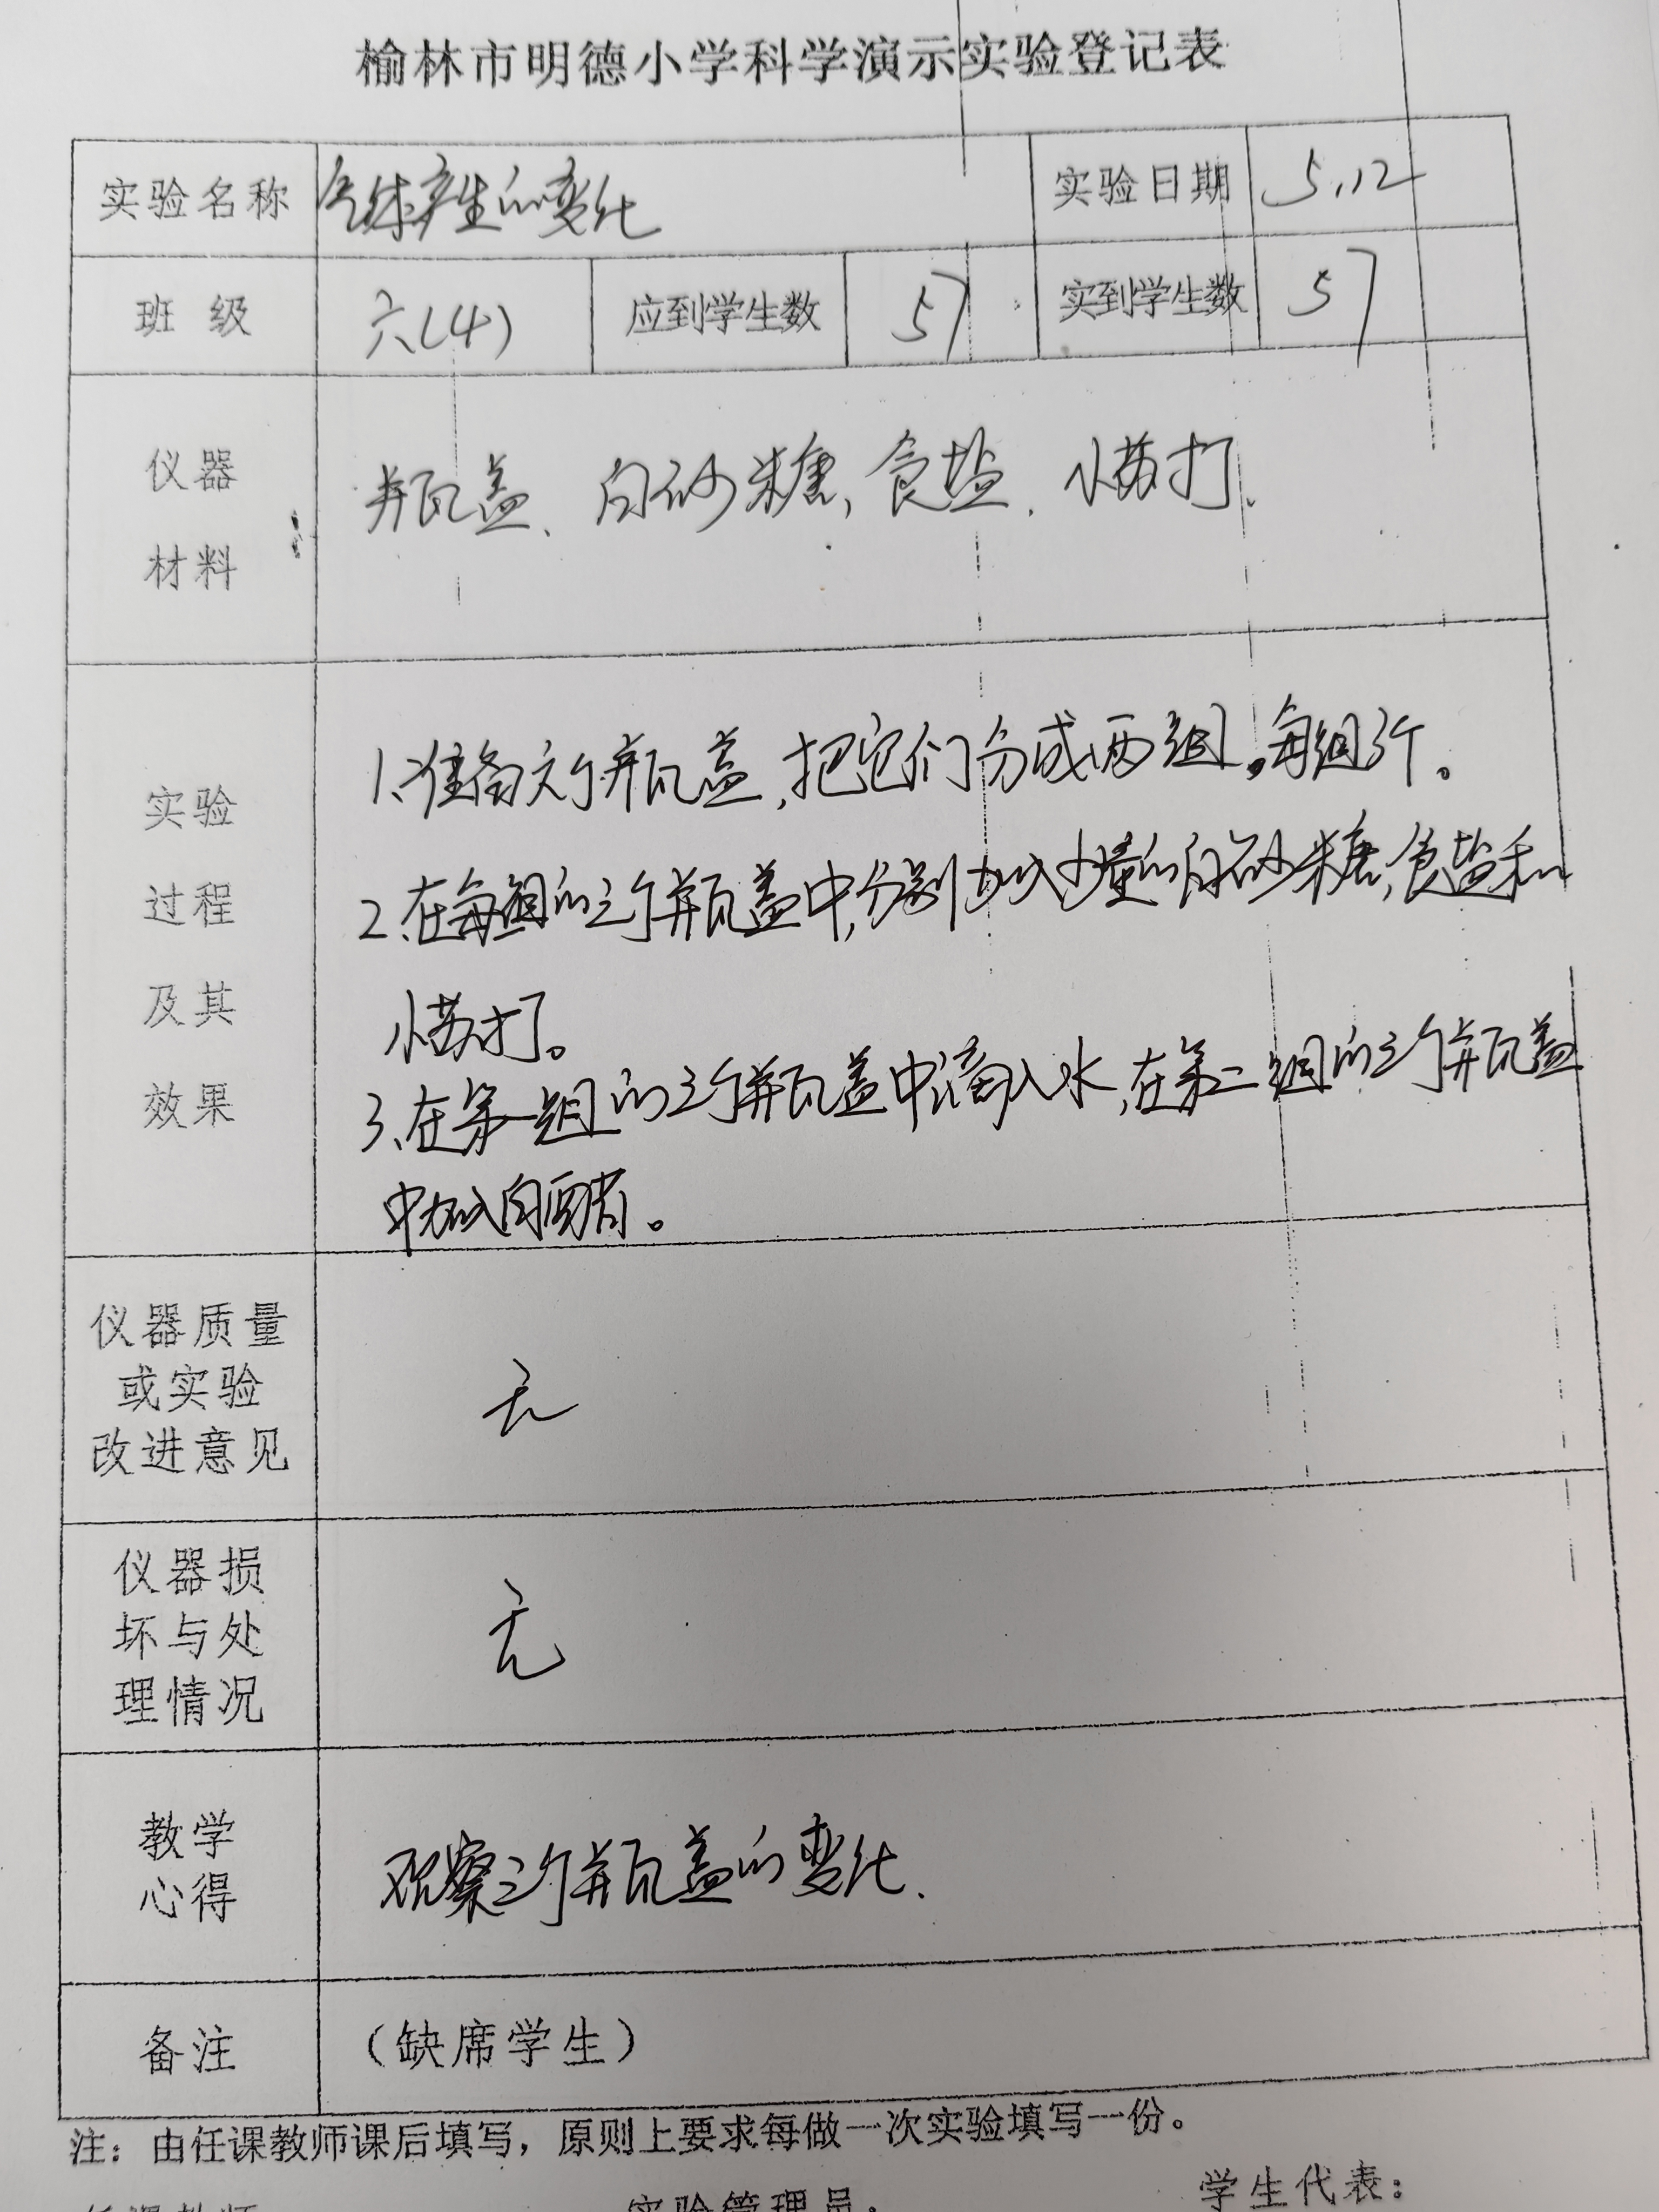 榆林市明德小学科学演示实验登记表
实验名称 气体产生的变化 实验日期 5.12
班级 六(4) 应到学生数 57 实到学生数 57
仪器
材料
瓶盖、白砂糖、食盐、小苏打、
实验
过程
及其
效果
1、准备六个瓶盖,把它们分成两组。每组3个。
2、在每组的三个瓶盖中,分别加入少量的白砂糖,食盐和
小苏打。
3、在第一组的三个瓶盖中滴入水,在第二组的三个瓶盖
中加入白醋。
仪器质量
或实验
改进意见
无
仪器损
坏与处
理情况
无
教学
心得
观察三个瓶盖的变化、
备注 (缺席学生)
注:由任课教师课后填写,原则上要求每做一次实验填写一份。
任课教师 实验管理员: 学生代表: